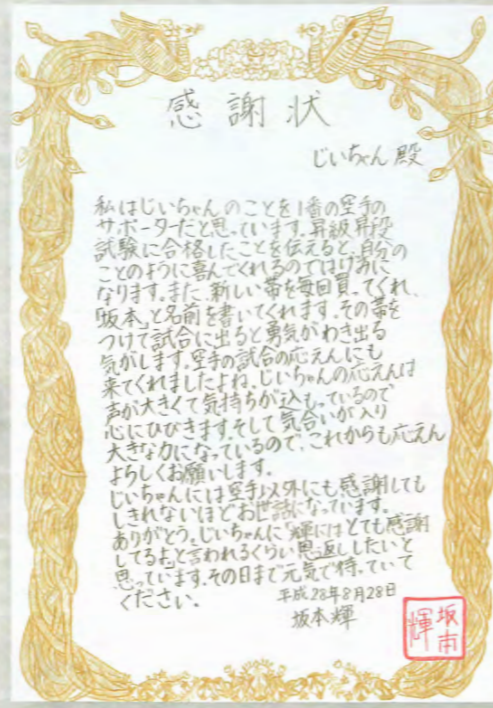 感謝状
じいちゃん 殿
私はじいちゃんのことを1番の空手の
サポーターだと思っています。昇級、昇段
試験に合格したことを伝えると、自分の
ことのように喜んでくれるのではげみに
なります。また、新しい帯を毎回買ってくれ、
「坂本」と名前を書いてくれます。その帯を
つけて試合に出ると勇気がわき出る
気がします。空手の試合の応えんにも
来てくれましたよね。じいちゃんの応えんは
声が大きくて気持ちが込もっているので
心にひびきます。そして気合いが入り
大きな力になっているので、これからも応えん
よろしくお願いします。
じいちゃんには空手以外にも感謝しても
しきれないほどお世話になっています。
ありがとう。じいちゃんに「輝にはとても感謝
してるよ」と言われるくらい恩返ししたいと
思っています。その日まで元気で待っていて
ください。
平成28年8月28日
坂本輝
坂本
輝